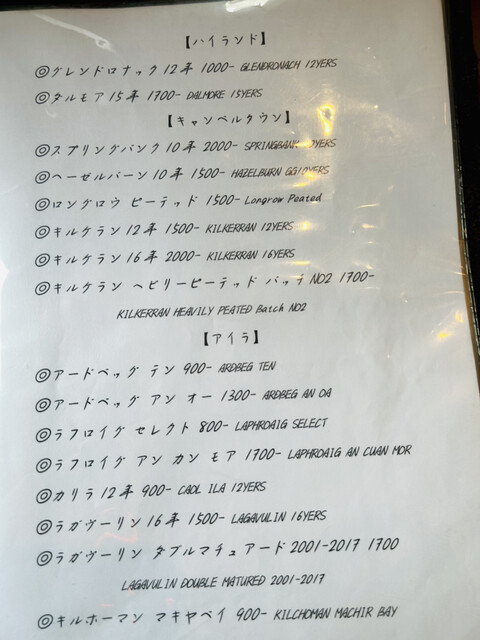 【ハイランド】
◎グレンドロナック 12年 1000- GLENDRONACH 12YERS
◎ダルモア 15年 1700- DALMORE 15YERS
【キャンベルタウン】
◎スプリングバンク 10年 2000- SPRINGBANK 10YERS
◎ヘーゼルバーン 10年 1500- HAZELBURN 10YERS
◎ロングロウ ピーテッド 1500- Longrow Peated
◎キルケラン 12年 1500- KILKERRAN 12YERS
◎キルケラン 16年 2000- KILKERRAN 16YERS
◎キルケラン ヘビリーピーテッド バッチ NO2 1700-
KILKERRAN HEAVILY PEATED Batch NO2
【アイラ】
◎アードベッグ テン 900- ARDBEG TEN
◎アードベッグ アン オー 1300- ARDBEG AN OA
◎ラフロイグ セレクト 800- LAPHROAIG SELECT
◎ラフロイグ アン カン モア 1700- LAPHROAIG AN CUAN MOR
◎カリラ 12年 900- CAOL ILA 12YERS
◎ラガヴーリン 16年 1500- LAGAVULIN 16YERS
◎ラガヴーリン ダブルマチュアード 2001-2017 1700
LAGAVULIN DOUBLE MATURED 2001-2017
◎キルホーマン マキヤベイ 900- KILCHOMAN MACHIR BAY